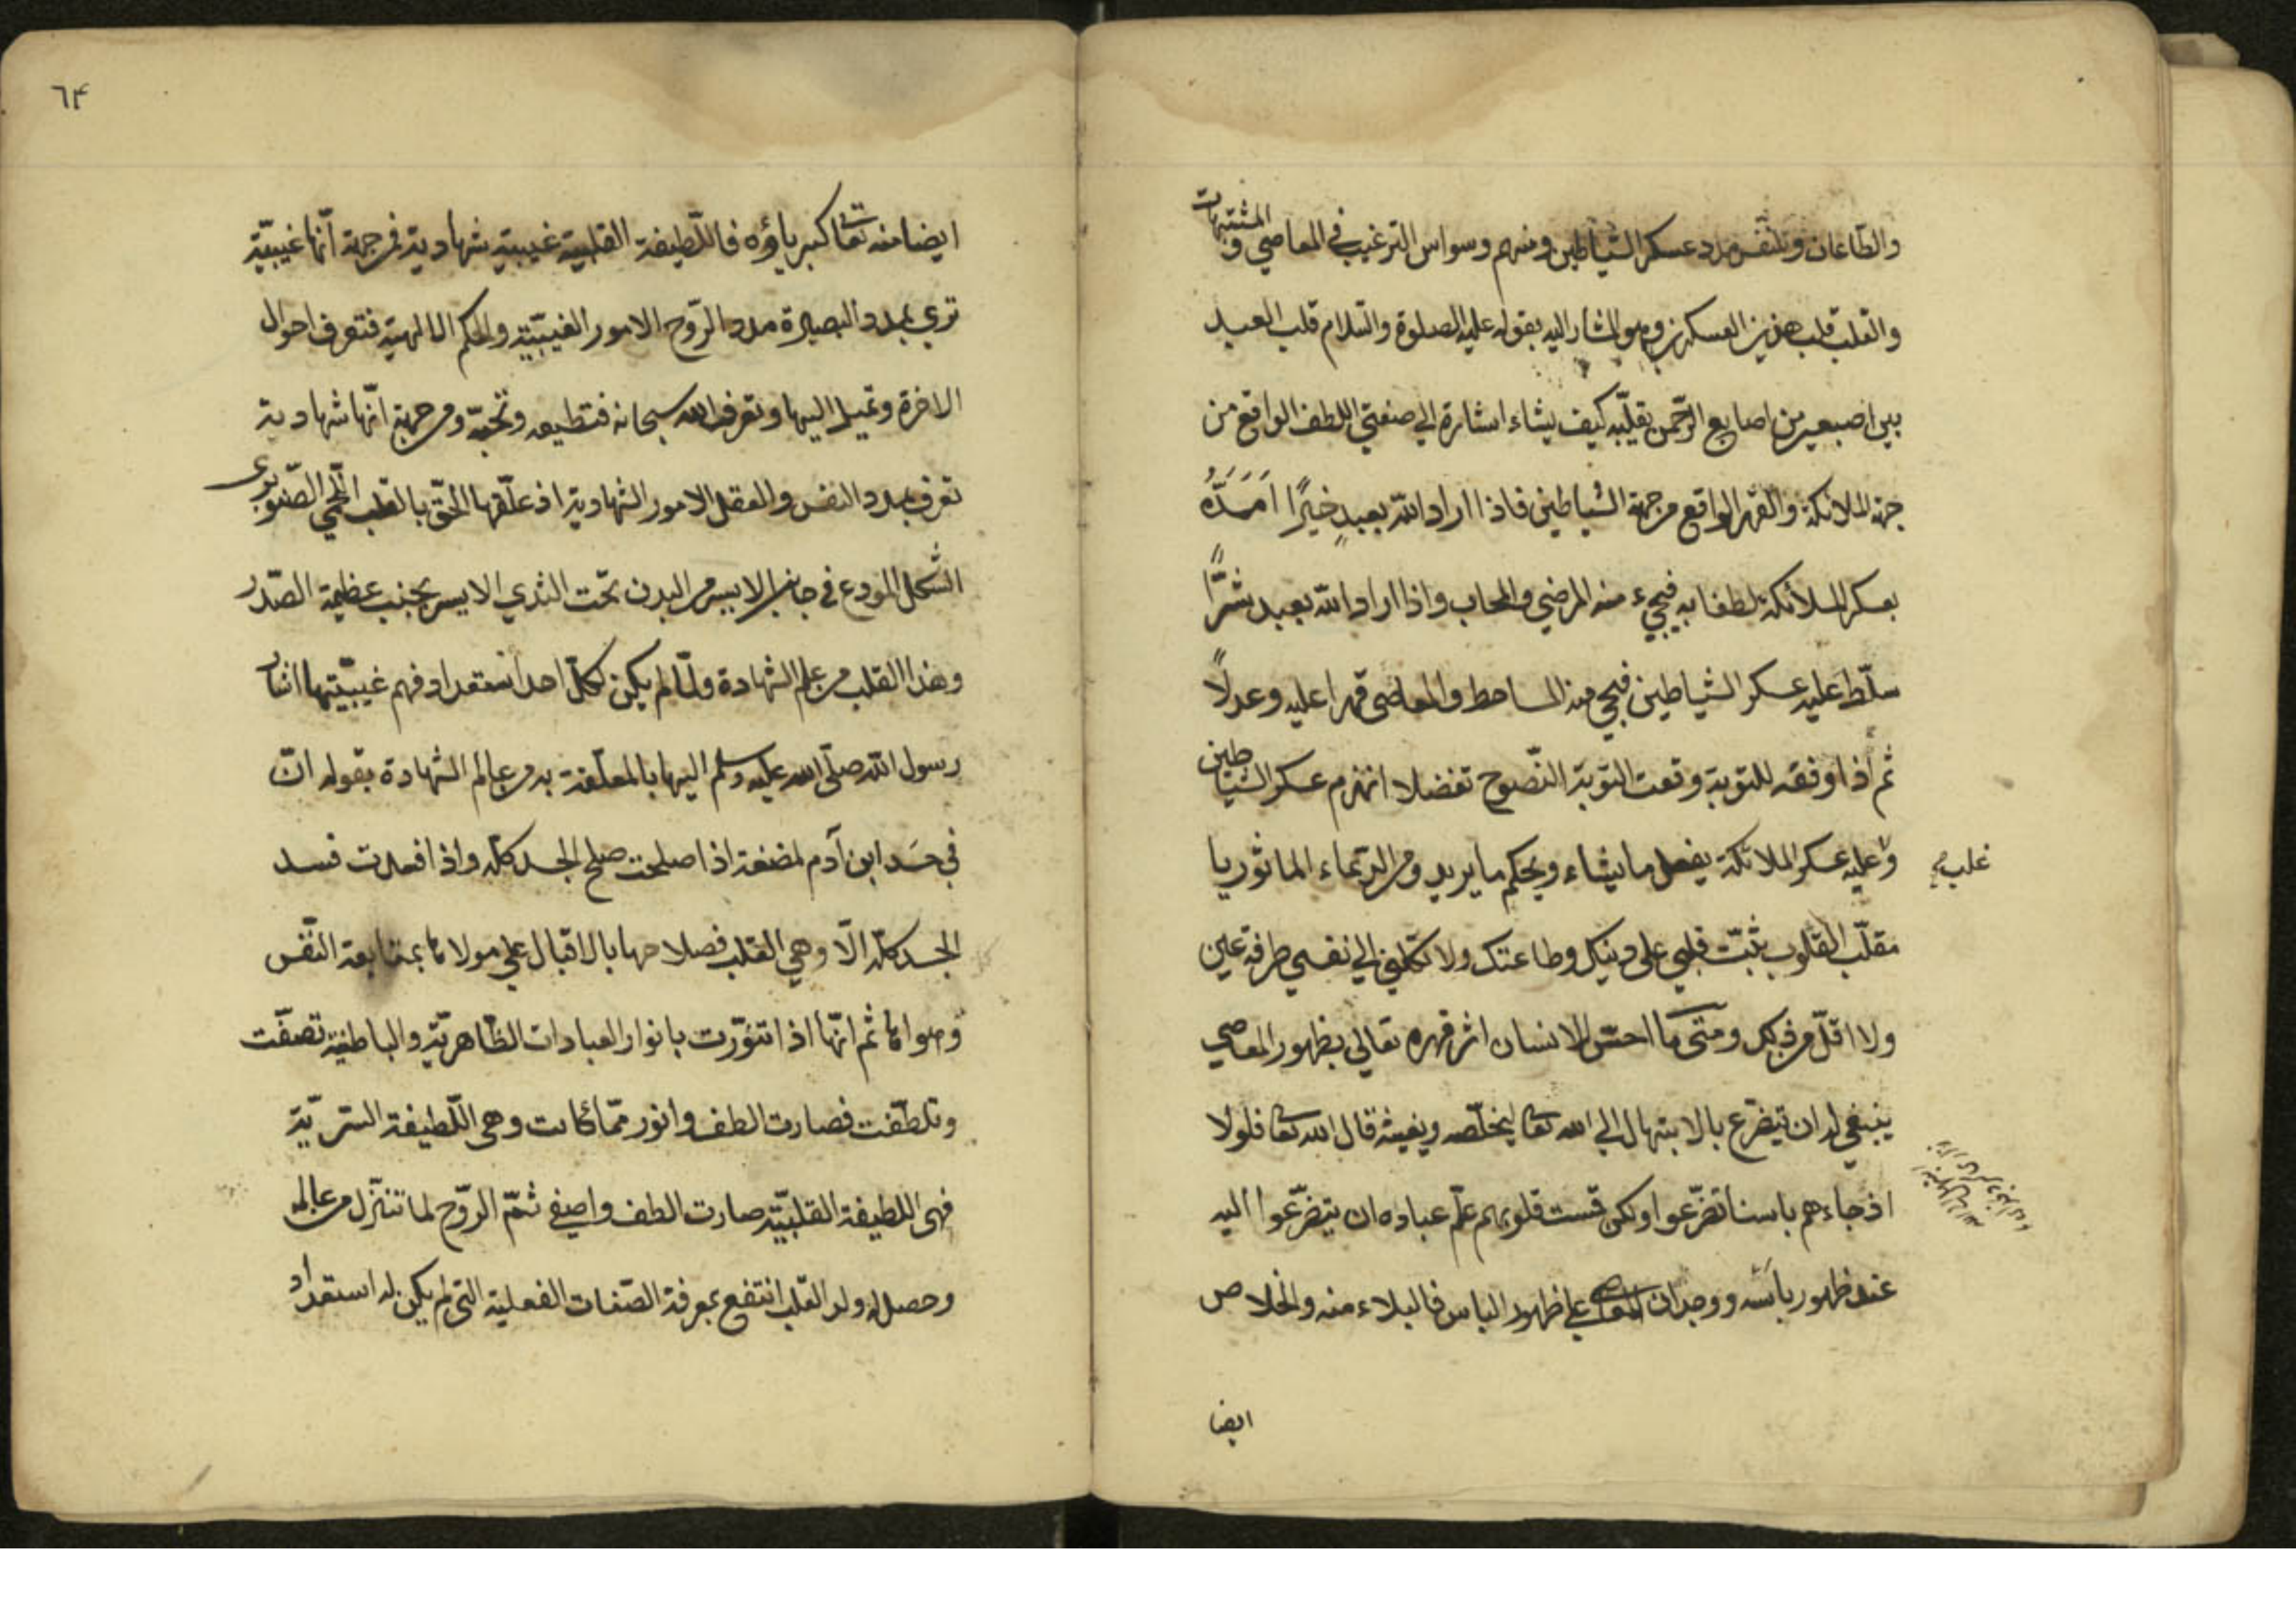 والطاعات وللنفس مدد عسكر الشياطين ومنهم وسواس الترغيب في المعاصي و المشتبهات
والقلب قلب هذين العسكرين وهو المشار اليه بقوله عليه الصلوة والسلام قلب العبد
بين اصبعين من اصابع الرحمن يقلّبه كيف يشاء اشارة الي صفتي اللطف الواقع من
جهة الملائكة والقهر الواقع من جهة الشياطين فاذا اراد الله بعبدٍ خيرًا اَمَدَّهُ
بعسكر الملائكة لطفا به فيجيء منه المرضي والمحاب واذا اراد الله بعبد شرًّا
سلّط عليه عسكر الشياطين فيجي منه المساخط والمعاصي قهرا عليه وعدلاً
ثم اذا وفقه للتوبة وقعت التوبة النّصوح تفضلا انهزم عسكر الشياطين
و عليه عسكر الملائكة يفعل ما يشاء ويحكم ما يريد ومن الدعاء الماثور يا
غلب
مقلّب القلوب ثبّت قلبي على دينك وطاعتك ولا تكلني الي نفسي طرفة عين
ولا اقلّ من ذلك ومتى ما احسّ الانسان اثر قهره تعالي بظهور المعاصي
ينبغي له ان يتضرّع بالابتهال الي الله تعا ليخلّصه ويغيثه قال الله تعا فلولا
اذ جاءهم باسنا تضرّعوا ولكن قست قلوبهم علّم عباده ان يتضرّعوا اليه
عند ظهور بأسه ووجدان المعاصي علي ظهور الباس فالبلاء منه والخلاص
ايضا
٦٤
ايضا منه تعا كبرياؤه فاللّطيفة القلبية غيبية شهادية فمن جهة انّها غيبيّة
تري بمدد البصيرة مدد الرّوح الامور الغيبيّة والحكم الالهية فتعرف احوال
الاخرة وتميل اليها وتعرف الله سبحانه فتطيعه وتحبّه ومن جهة انّها شهادية
تعرف بمدد النفس والعقل الامور الشهادية اذ علّقها الحّق بالقلب اللّحمي الصّنوبري
الشّكل المودع في جانب الايسر من البدن تحت الثدي الايسر بجنب عظيمة الصّدر
وهذا القلب من عالم الشهادة ولمّا لم يكن لكلّ احد استعداد فهم غيبيّتها اشار
رسول الله صلّى الله عليه وسلم اليها بالمعلّقة به من عالم الشهادة بقوله انّ
في جَسَد ابن آدم لمضغة اذا صلحت صلح الجسد كلّه واذا فسدت فسد
الجسد كلّه الّا وهي القلب فصلاحها بالاقبال علي مولاها بمتابعة النّفس
وهواها ثم انّها اذا تنوّرت بانوار العبادات الظّاهريّة والباطنيّة تصفّت
وتلطّفت فصارت الطف وانور ممّا كانت وهي اللّطيفة السّرّيّة
فهي اللطيفة القلبيّة صارت الطف واصفي ثمّ الرّوح لما تنزّل من عالمه
وحصل له ولد القلب انتفع بمعرفة الصّفات الفعلية التي لم يكن له استعداد